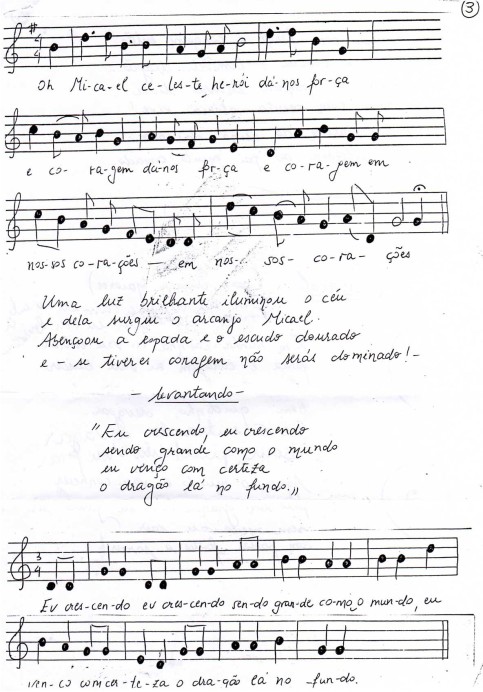 3
4
4
Oh Mi-ca-el ce-les-te he-rói dá-nos for-ça
e co- ra-gem dá-nos for-ça e co-ra-gem em
nos-sos co-ra-ções — em nos- sos- co-ra- ções
Uma luz brilhante iluminou o céu
e dela surgiu o arcanjo Micael.
Abençoou a espada e o escudo dourado
e - se tiveres coragem não serás dominado! -
- levantando -
"Eu crescendo, eu crescendo
sendo grande como o mundo
eu venço com certeza
o dragão lá no fundo."
3
4
Eu cres-cen-do eu cres-cen-do sen-do gran-de co-mo o mun-do, eu
ven-ço com cer-te-za o dra-gão lá no fun-do.